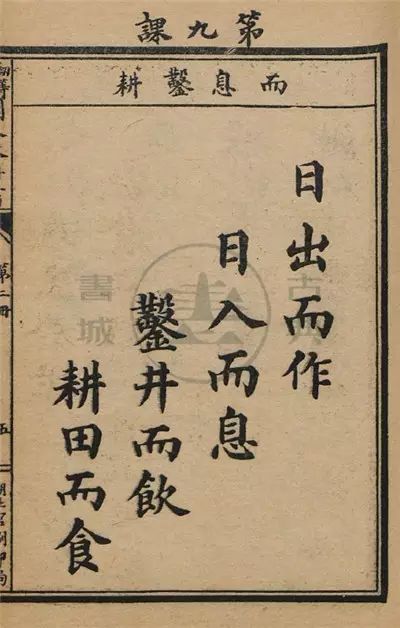 第九課
而息鑿耕
日出而作
日入而息
鑿井而飲
耕田而食
第二冊
五
古典
書城